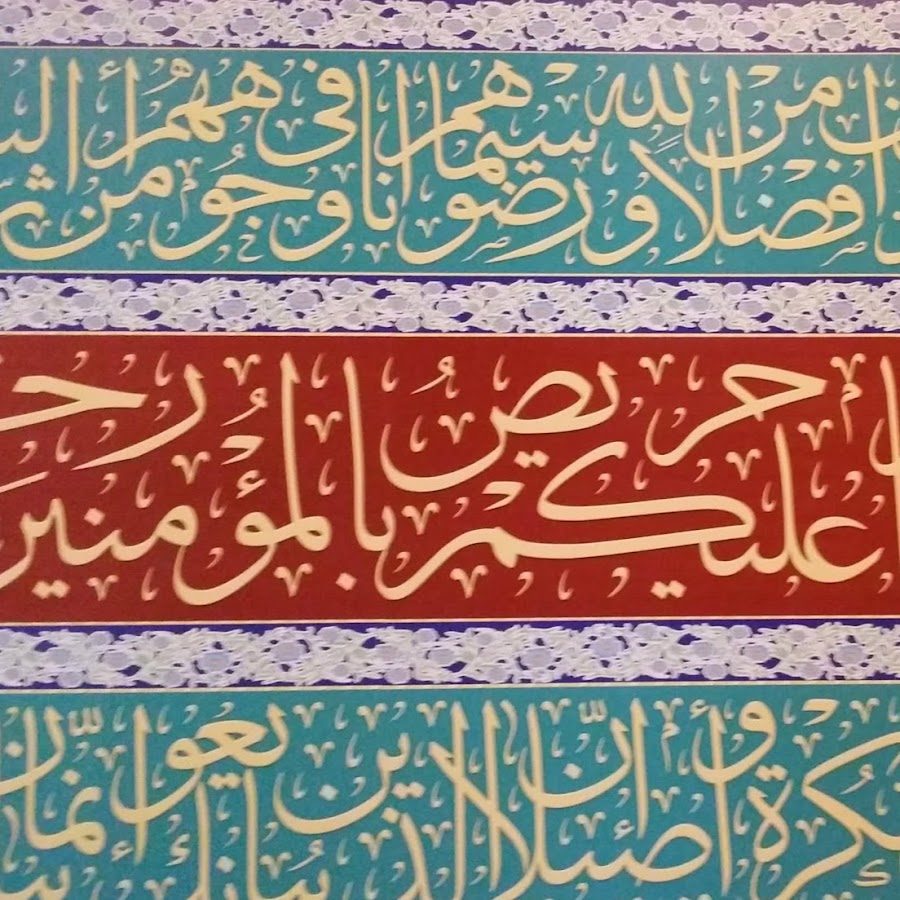 فضلا من الله ورضوانا سيماهم في وجوههم من أثر
حريص عليكم بالمؤمنين
بكرة وأصيلا إن الذين يبايعونك إنما